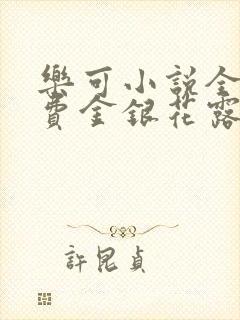 樂可小說全
費金銀花露
許昆貞